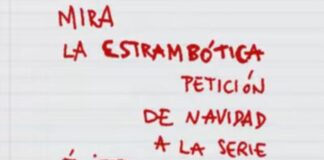 MIRA
LA ESTRAMBÓTICA
PETICIÓN
DE NAVIDAD
A LA SERIE